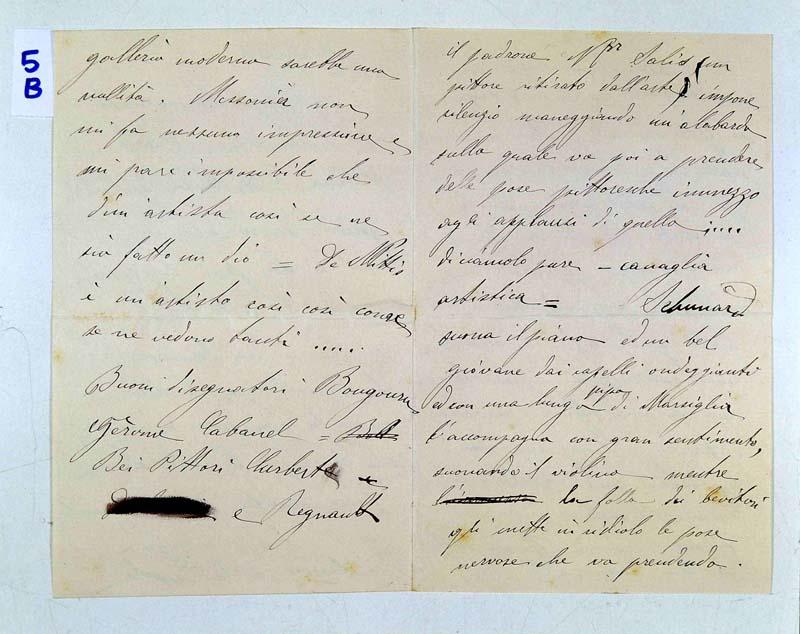 5
B
galleria moderna sarebbe una
nullità. Messonier non
mi fa nessuna impressione e
mi pare impossibile che
d'un artista così se ne
sia fatto un dio = De Nittis
è un artista così così come
se ne vedono tanti .....
Buoni disegnatori Bougourau
Gérome Cabanel =
Bei Pittori Curbert
e Regnault
il padrone Mr Salis (un
pittore ritirato dall'arte) impone
silenzio maneggiando un'alabarda
sulla quale va poi a prendere
delle pose pittoresche in mezzo
agli applausi di quella .....
diciamolo pure - canaglia
artistica = Schunard
suona il piano ed un bel
giovane dai capelli ondeggianti
ed con una lunga pipa di Marsiglia
l'accompagna con gran sentimento,
suonando il violino mentre
la folla dei bevitori
gli mette in ridicolo le pose
nervose che va prendendo.